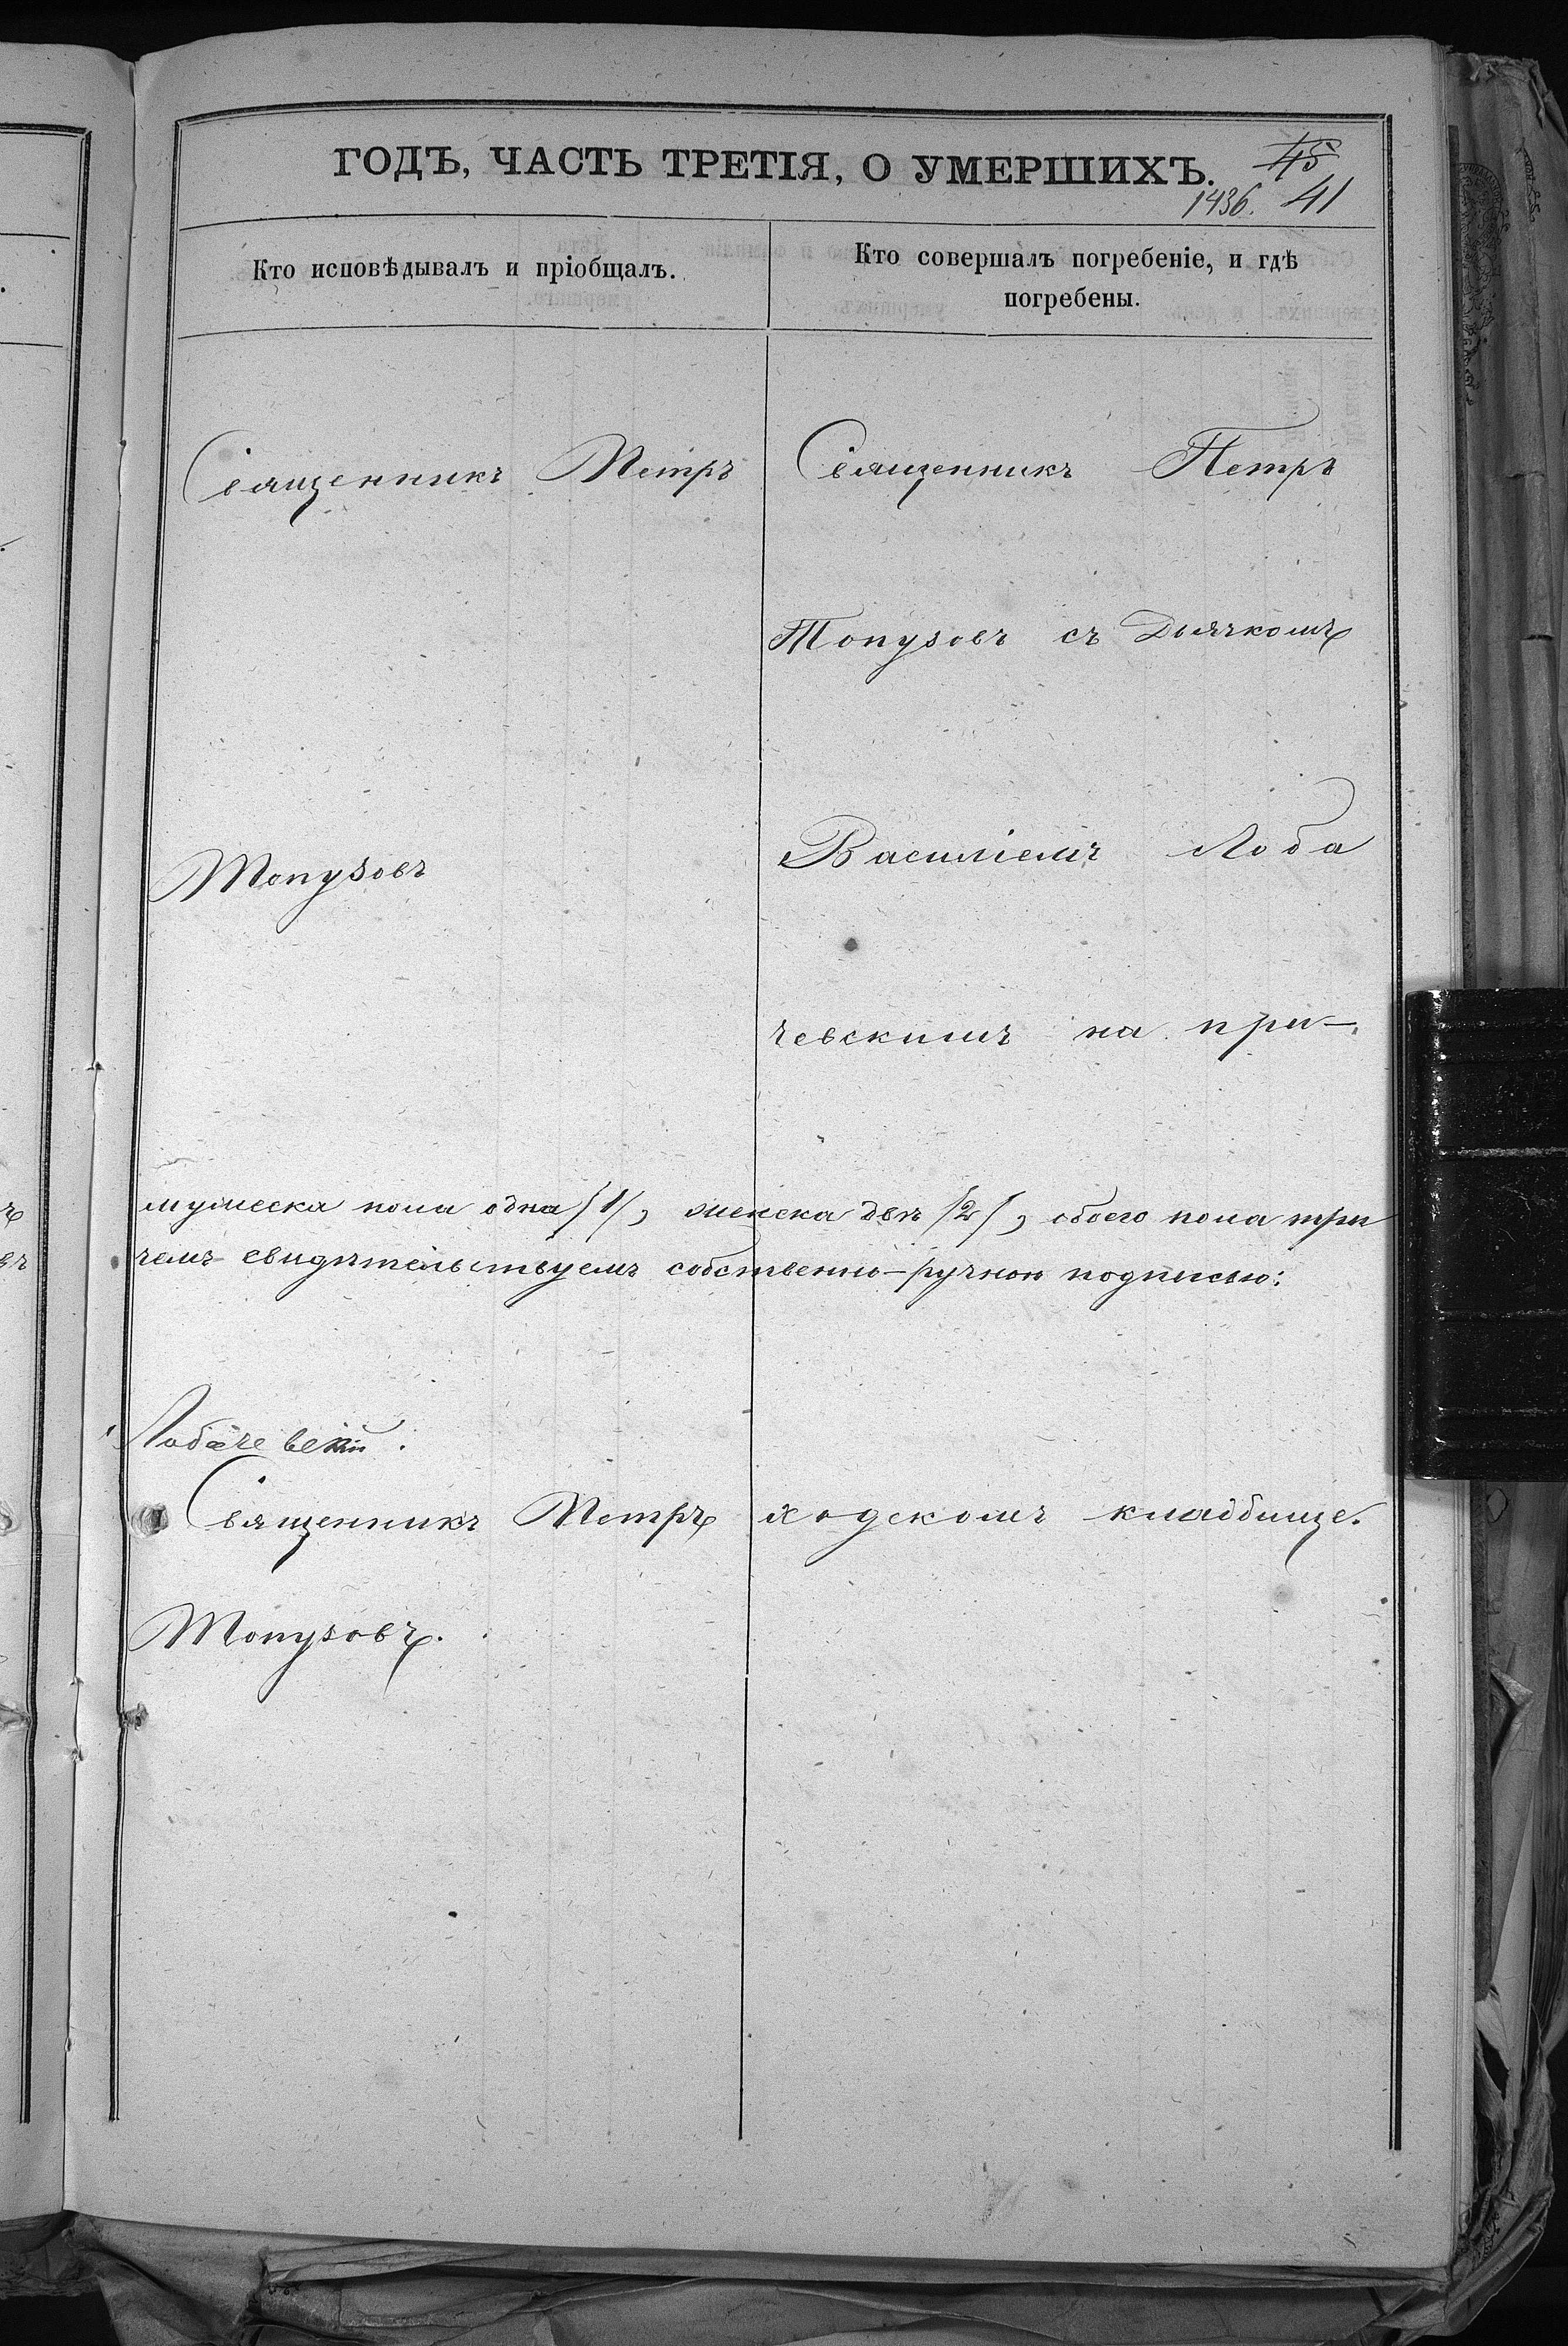 ГОДЪ, ЧАСТЬ ТРЕТІЯ, О УМЕРШИХЪ.
45
1436. 41
Кто исповѣдывалъ и пріобщалъ.
Кто совершалъ погребеніе, и гдѣ
погребены.
Священникъ Петръ
Топузовъ
Священникъ Петръ
Топузовъ съ Дьячкомъ
Василіемъ Лоба
чевскимъ на при-
мужеска пола одна /1/, женска двѣ /2/, обоего пола три
чемъ свидѣтельствуемъ собственно-ручною подписью:
Лобачевскій.
Священникъ Петръ
Топузовъ.
ходскомъ кладбище.